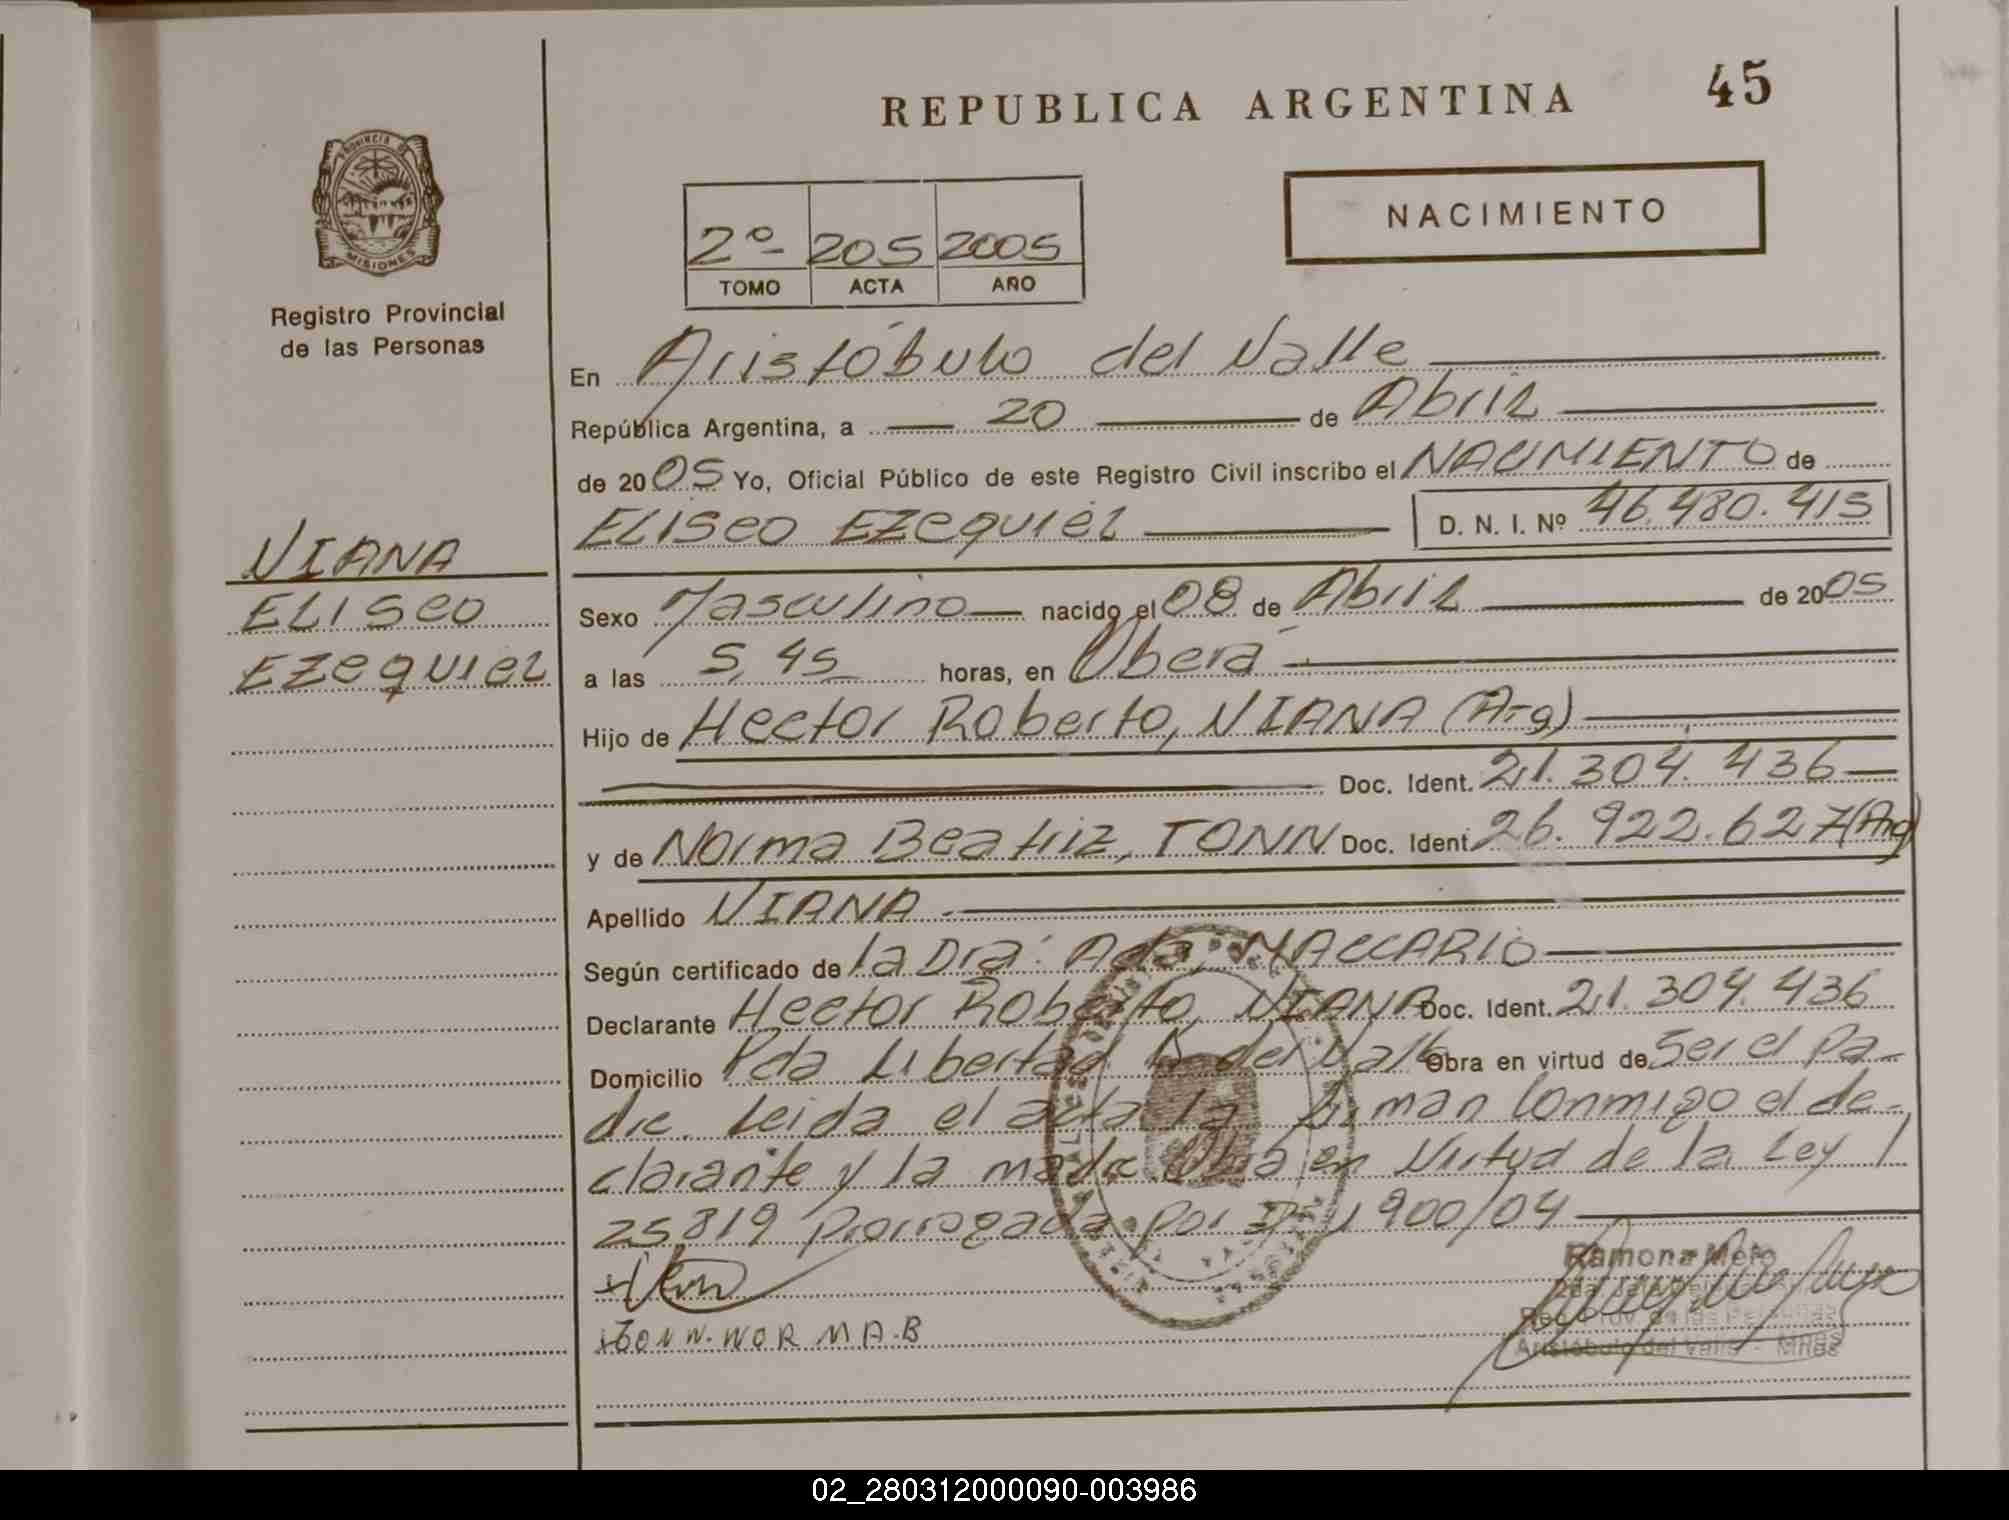 REPUBLICA ARGENTINA 45
PROVINCIA DE
MISIONES
Registro Provincial
de las Personas
2º 205 2005
TOMO ACTA AÑO
NACIMIENTO
En Aristóbulo del Valle
República Argentina, a 20 de Abril
de 2005 Yo, Oficial Público de este Registro Civil inscribo el NACIMIENTO de
ELISEO EZEQUIEL D. N. I. Nº 46.480.415
VIANA
ELISEO
EZEQUIEL
Sexo Masculino nacido el 08 de Abril de 2005
a las 5,45 horas, en Oberá
Hijo de Hector Roberto, VIANA (Arg)
Doc. Ident. 21.304.436
y de Norma Beatriz, TONN Doc. Ident. 26.922.627 (Arg)
Apellido VIANA
Según certificado de la Dra. Ada, MACCARIO
Declarante Hector Roberto, VIANA Doc. Ident. 21.304.436
Domicilio Pda Libertad A del Valle Obra en virtud de Ser el Pa-
dre. Leida el acta la firman Conmigo el de-
clarante y la madre. Obra en Virtud de la Ley
25819 Prorrogada por 1900/04
TONN. NORMA.B
Ramona
Reg. Prov. de las Personas
Aristóbulo del Valle - Mnes
02_280312000090-003986